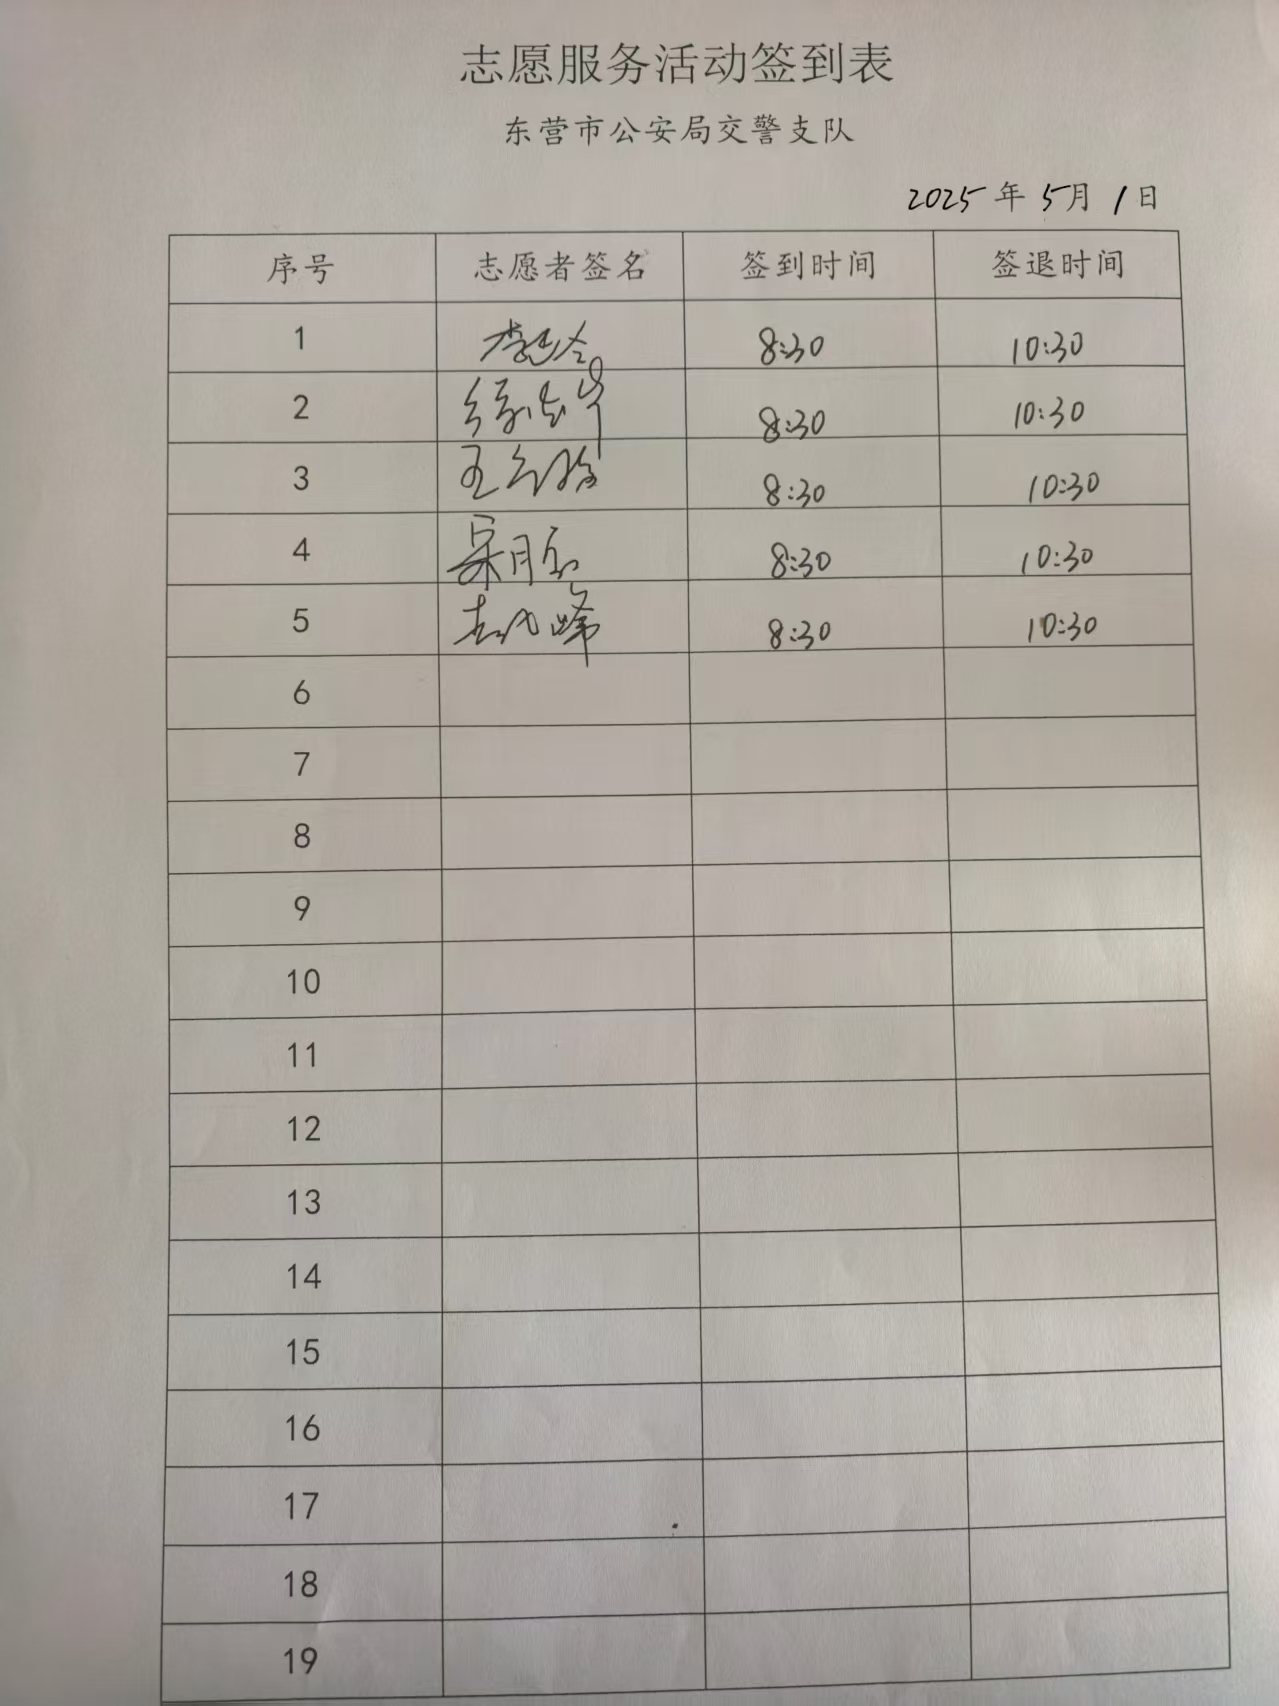 志愿服务活动签到表
东营市公安局交警支队
2025年5月1日
序号 志愿者签名 签到时间 签退时间
1 8:30 10:30
2 8:30 10:30
3 王 8:30 10:30
4 8:30 10:30
5 8:30 10:30
6
7
8
9
10
11
12
13
14
15
16
17
18
19